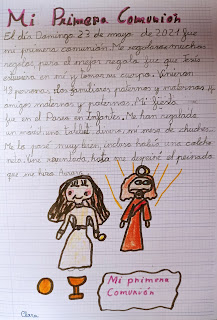 Mi Primera Comunión
El día Domingo 23 de mayo de 2021 fue
mi primera comunión. Me regalaron muchos
regalos, pero el mejor regalo fue que Jesús
estuviera en mí y tomar su cuerpo. Vinieron
49 personas, los familiares paternos y maternos y
amigos maternos y paternos. Mi fiesta
fue en el Paseo en Me han regalado
un móvil una tablet dinero, mi mesa de chuches.
Me lo pasé muy bien, incluso había una colcho
neta. Me hasta me deshice el peinado
que me hizo
Mi primera
Comunión
Clara